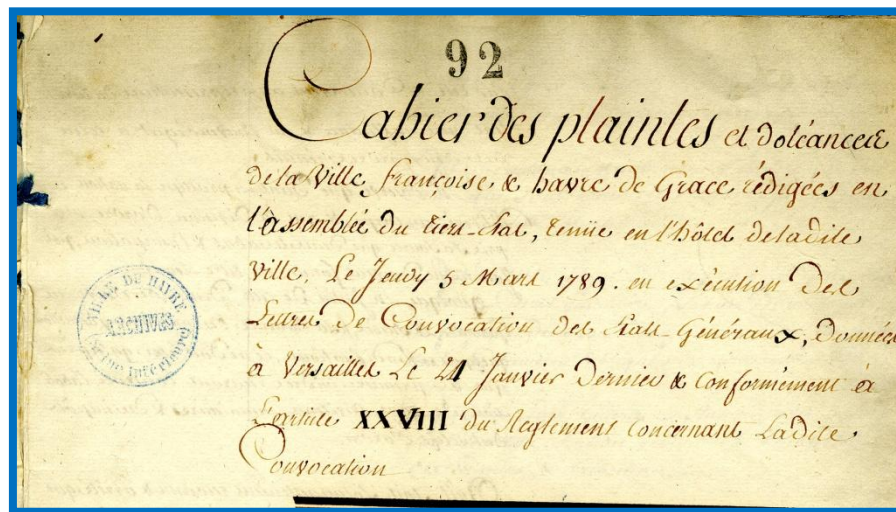 92
Cahier des plaintes et doléances
de la Ville françoise & havre de Grace rédigées en
l'assemblée du tiers-Etat, tenüe en l'hôtel de ladite
ville, Le Jeudy 5 Mars 1789. en exécution des
Lettres de Convocation des Etats-Généraux, données
à Versailles Le 24 Janvier Dernier & conformément à
l'article XXVIII du Reglement concernant Ladite
Convocation
VILLE DU HAVRE
ARCHIVES
(Seine Inférieure)